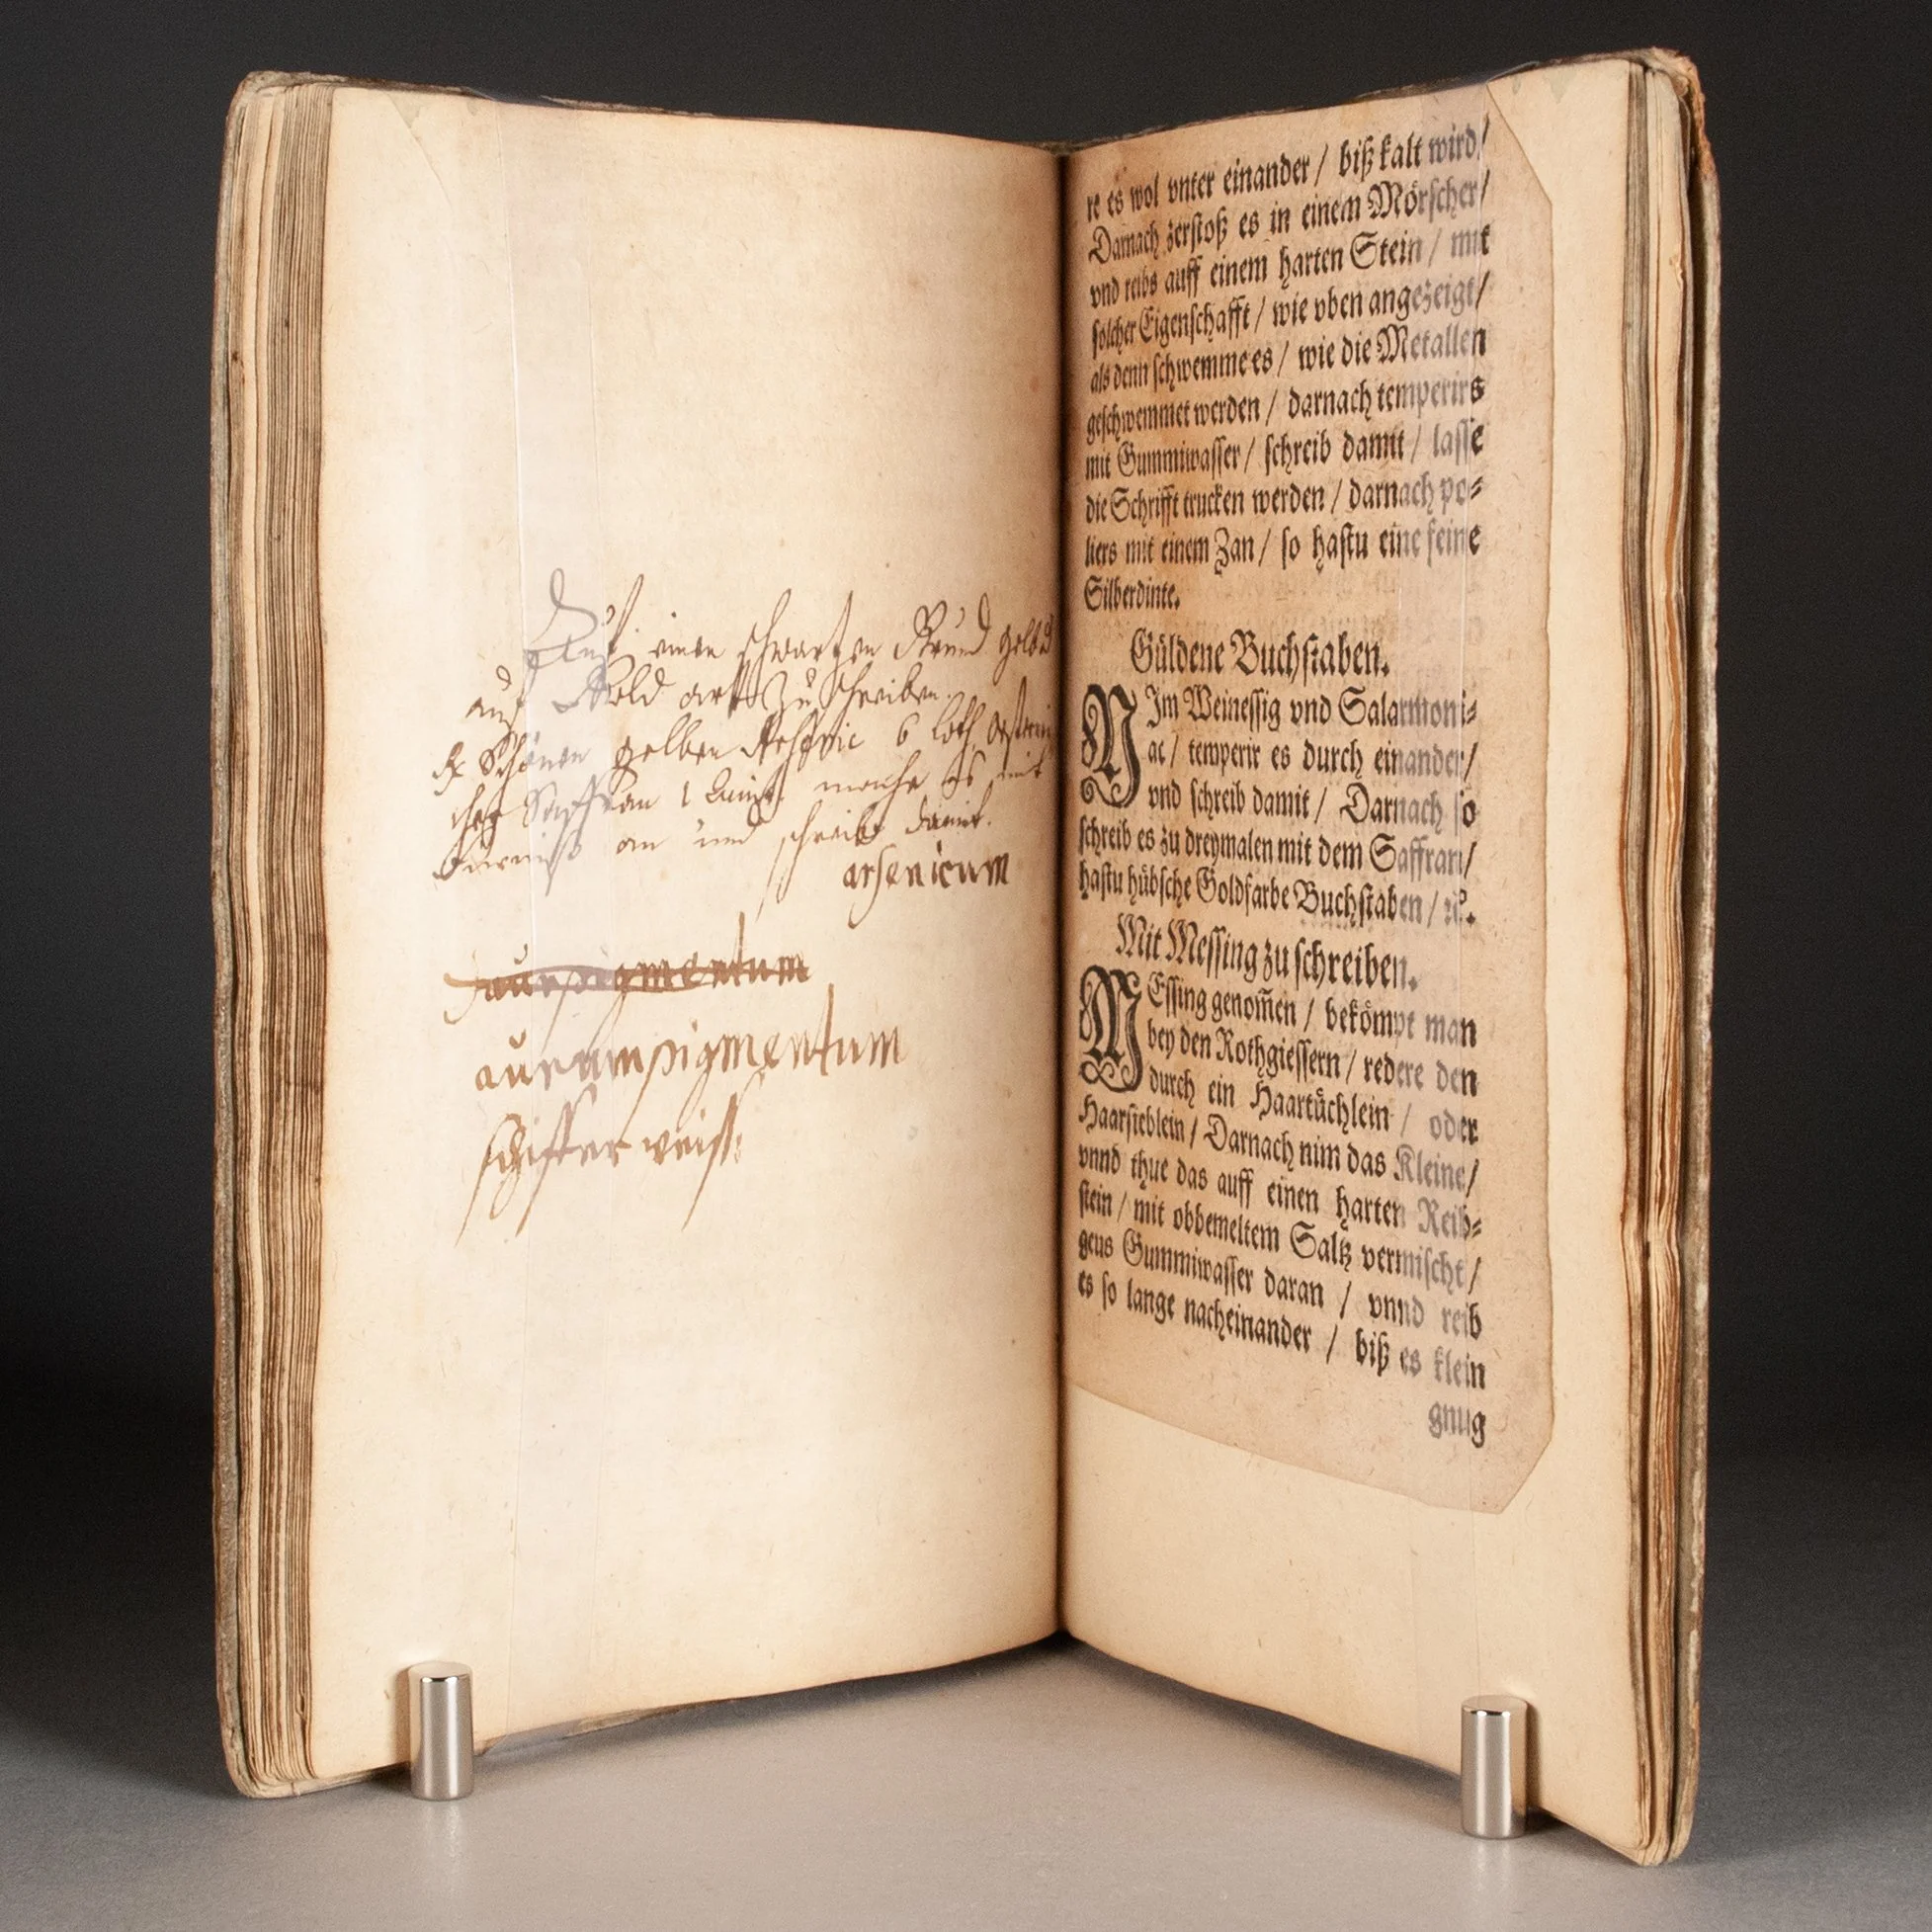 Auf einen schwartzen Grund gelb
auf Gold art zu schreiben.
Rx Schönen gelben Arsenic 6 loth
Saffran 1 Quint. mache es mit
an und schreibe damit.
arsenicum
auripigmentum
aurumpigmentum
schiffer weiss
re es wol vnter einander / biß kalt wird /
Darnach zerstoß es in einem Mörscher /
vnd reibs auff einem harten Stein / mit
solcher Eigenschafft / wie oben angezeigt /
als denn schwemme es / wie die Metallen
geschwemmet werden / darnach temperirs
mit Gummiwasser / schreib damit / lasse
die Schrifft trucken werden / darnach po⸗
liers mit einem Zan / so hastu eine feine
Silberdinte.
Güldene Buchstaben.
NIm Weinessig vnd Salarmoni⸗
ac / temperir es durch einander /
vnd schreib damit / Darnach so
schreib es zu dreymalen mit dem Saffran /
hastu hübsche Goldfarbe Buchstaben / ꝛc.
Mit Messing zu schreiben.
MEssing genom̃en / bekömpt man
bey den Rothgiessern / redere den
durch ein Haartüchlein / oder
Haarsieblein / Darnach nim das Kleine /
vnnd thue das auff einen harten Reib⸗
stein / mit obbemeltem Saltz vermischt /
geus Gummiwasser daran / vnnd reib
es so lange nacheinander / biß es klein
gnug